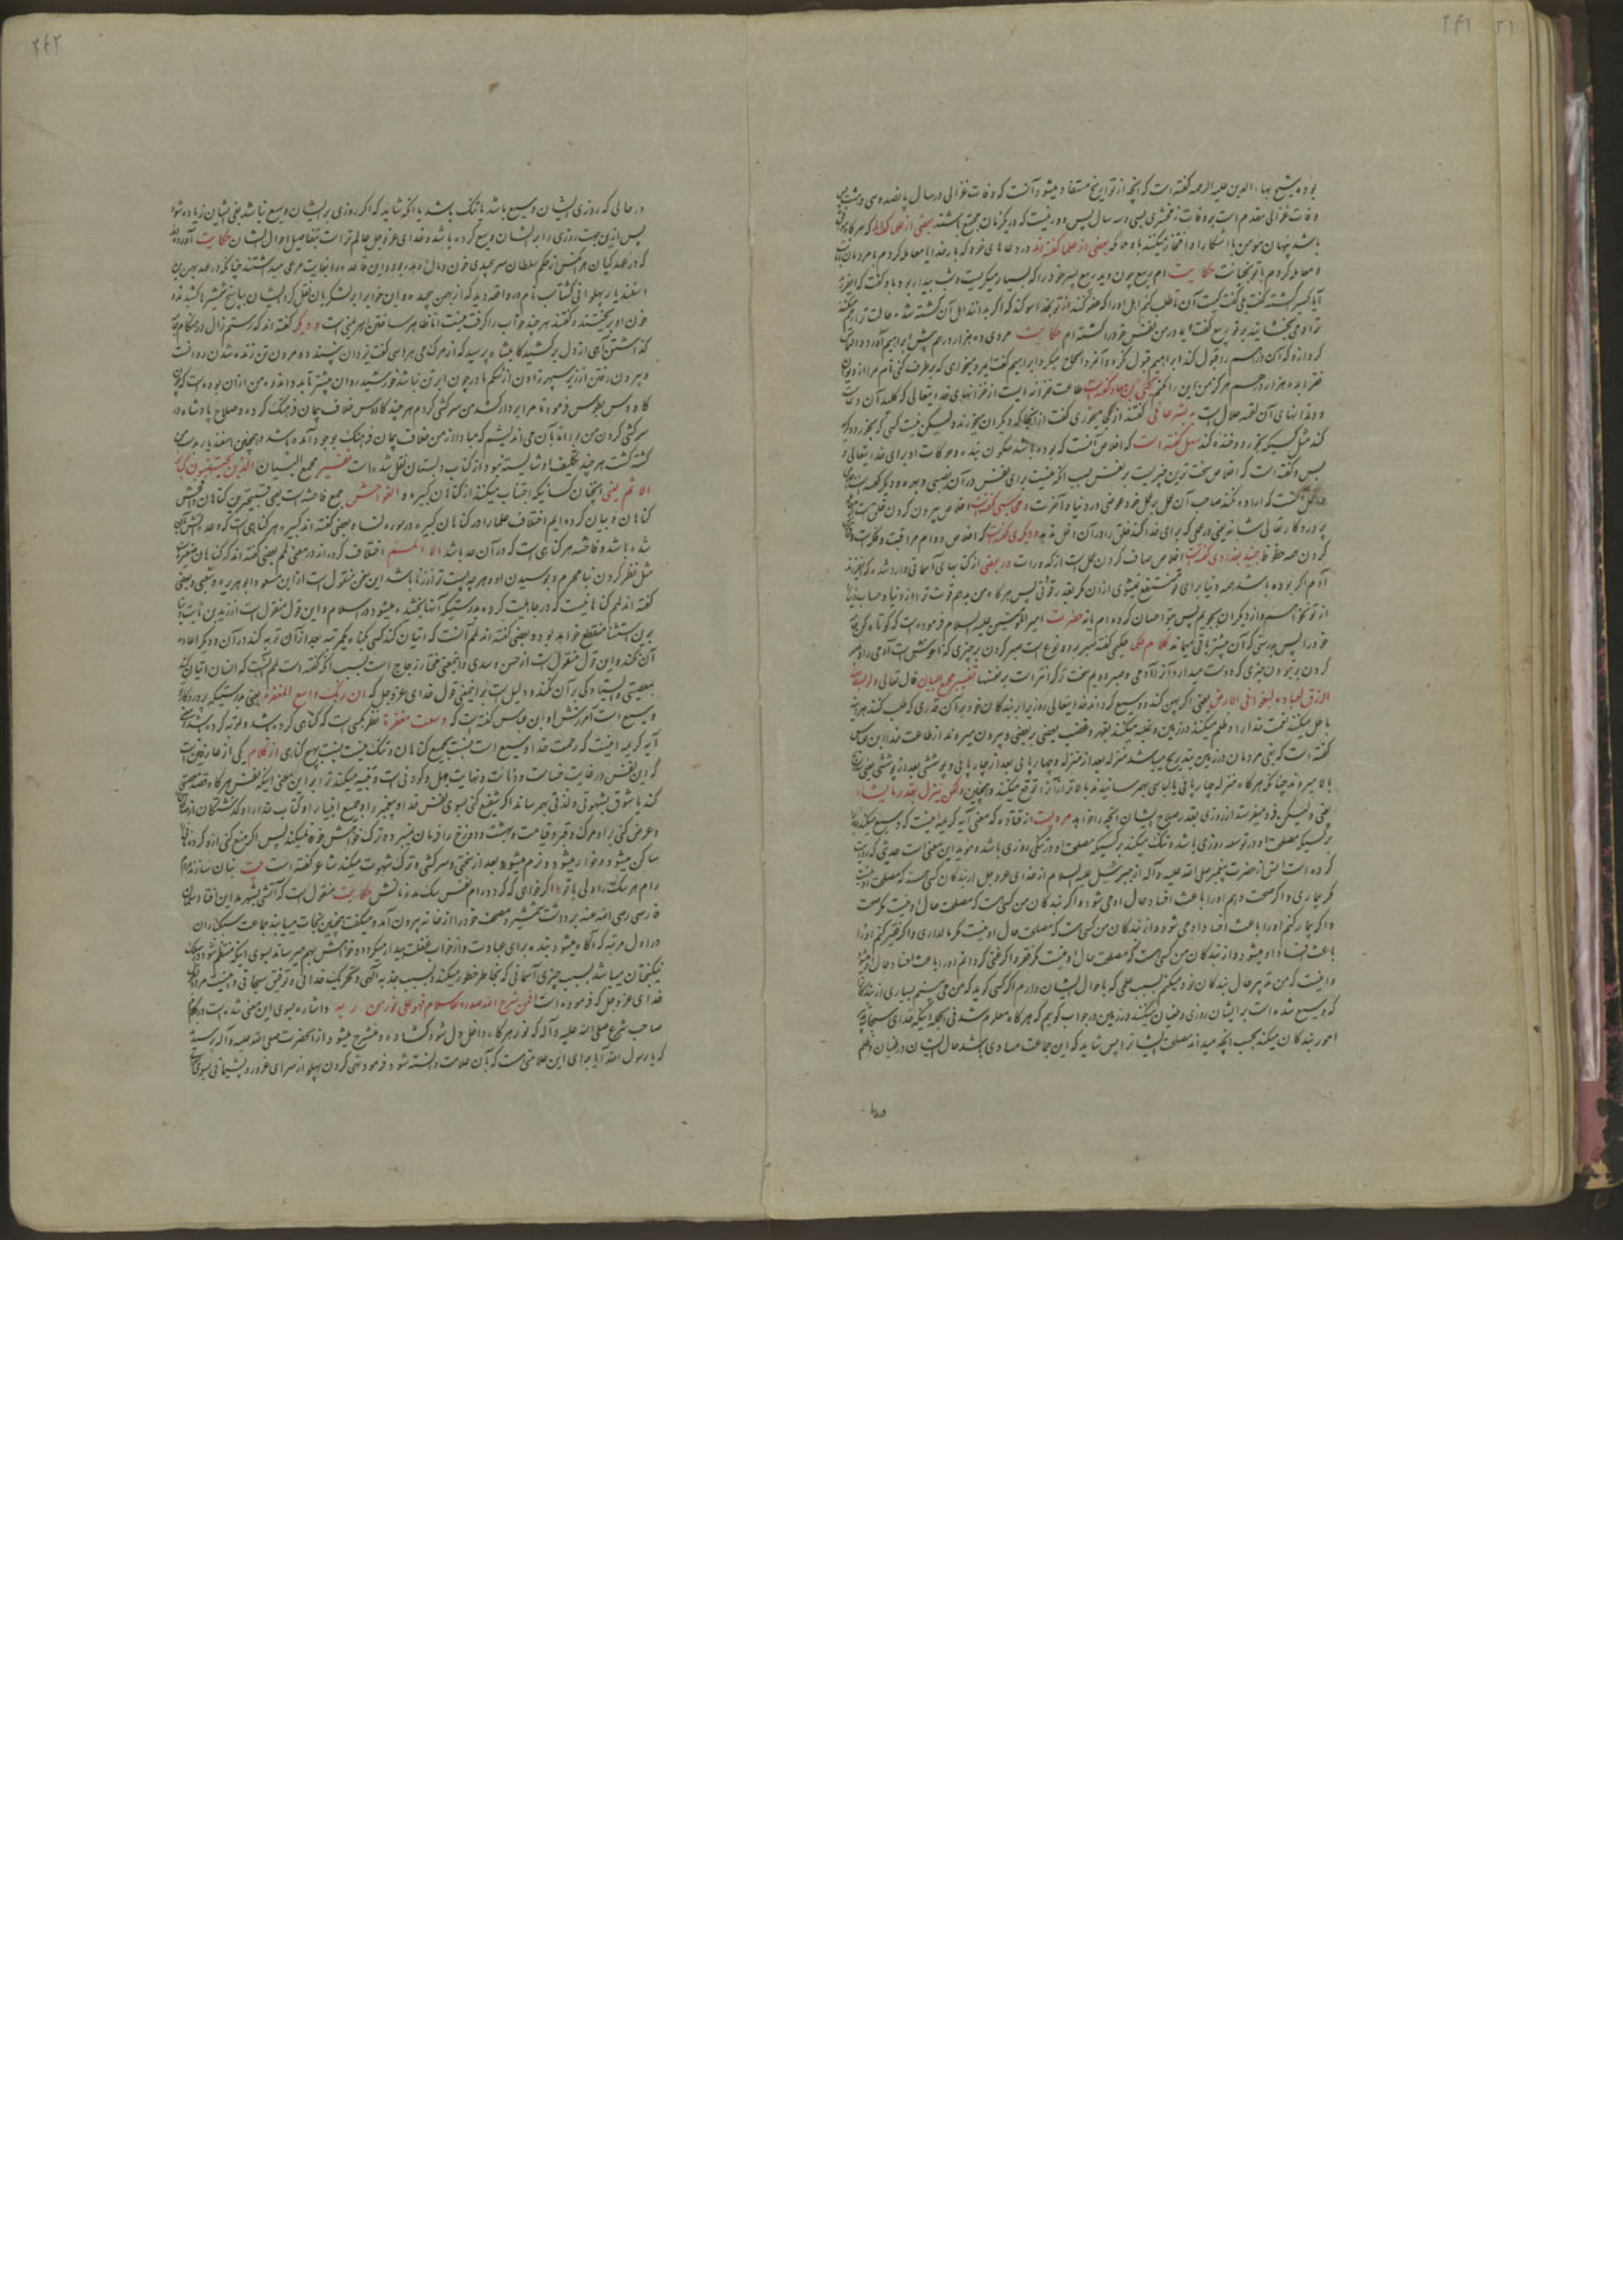 ۲۶۱
بوده شیخ بهاء الدین علیه الرحمه گفته است که آنچه از تواریخ مستفاد میشود آنست که وفات غزالی در سال پانصد و سی و
وفات غزالی مقدم است بر وفات زمخشری بسی و سه سال پس دور نیست که در یکزمان مجتمع باشند بعضی از علما که هر گاه
باشد پنهان مومن با اشکارا و افتخار میکنند با و ملائکه بعضی از علما گفته اند در دعاهای خود که بار خدایا معامله کردم با مردمان
و معامله کردم با تو بخیانت حکایت ام ربیع چون دید ربیع پسر خود را که بسیار میگریست و شب بیدار بود با و گفت که ای فرزند
آیا کسی را کشته گفت بلی گفت کیست آن تا طلب کنم اهل او را که عفو کنند از تو بخدا سوگند که اگر بدانند اهل آن کشته شده حالت ترا رحم میکنند
ترا و می بخشایند بر تو ربیع گفت ای مادر من نفس خود را کشته ام حکایت مردی ده هزار درهم پیش ابراهیم آورد و التماس
کرد از و که آن دراهم را قبول کند ابراهیم قبول نکرد و آنمرد الحاح میکرد ابراهیم گفت ای مرد میخواهی که بر طرف کنی نام مرا از دیوان
فقرا بده هزار درهم هرگز من این را نکنم یحیی بن معاذ گفته است طاعت خزانه ایست از خزانهای خدایتعالی که کلید آن دعاست
و دندانهای آن لقمه حلال است به بشر حافی گفتند از کجا میخوری گفت از آنجا که دیگران میخورند و لیکن نیست کسی که بخورد و گریه
کند مثل کسی که بخورد و خنده کند سهل گفته است که اخلاص آنست که بوده باشد سکون بنده و حرکات او برای خدایتعالی و
بس و گفته است که اخلاص سخت ترین چیزیست بر نفس بسبب آنکه نیست برای نفس در آن نصیبی و بهره و دیگر گفته است
که اراده نکند صاحب آن عمل بر عمل خود عوضی در دنیا و آخرت و محاسبی گفته است اخلاص بیرون کردن خلق است
پروردگار تعالی شانه یعنی در عملی که برای خدا کند خلق را در آن دخل ندهد و دیگری گفته است که اخلاص دوام مراقبت
کردن همه حظوظ جنید بغدادی گفته است اخلاص صاف کردن عمل است از کدورات در بعضی از کتابهای آسمانی وارد شده که ای فرزند
آدم اگر بوده باشد همه دنیا برای تو منتفع نمیشوی از آن مگر بقدر قوتی پس هر گاه من بدهم قوت ترا از دنیا و حساب
از تو نخواهم و از دیگران بجویم پس بتو احسان کرده ام یا نه حضرت امیر المومنین علیه السلام فرموده است که کوتاه کن
خود را پس بدرستی که آن بیشتر باقی میماند کلام حکما حکیمی گفته صبر بر دو نوع است صبر کردن بر چیزی که ناخوشش است آدمی را و صبر
کردن بر نبودن چیزی که دوست میدارد آنرا آدمی و صبر دویم سخت تر است بر نفسها تفسیر مجمع البیان قال تعالی ولو بسط الله
الرزق لعباده لبغوا فی الارض یعنی اگر پهن کند و وسیع گرداند خدایتعالی روزی را بر بندگان خود بر آن قدری که طلب کنند هر آینه
باطل میکنند نعمت خدا را و ظلم میکنند در زمین و غلبه میکنند بقهر و غضب بعضی بر بعضی و بیرون میروند از طاعت خدا ابن عباس
گفته است که بغی مردمان در زمین بتدریج میباشد منزله بعد از منزله و چهارپائی بعد از چارپائی و پوششی بعد از پوششی یعنی
بالا میروند چنانکه هر گاه منزله چارپائی یا لباسی بهمرسانیدند بالاتر از آنرا توقع میکنند و همچنین ولکن ینزل بقدر ما یشاء
یعنی و لیکن فرو میفرستد از روزی بقدر صلاح ایشان آنچه را خواهد مرویست از قتاده که معنی آیه کریمه اینست که وسیع میکند
بر کسی که مصلحت او در توسعه روزی باشد و تنگ میکند بر کسی که مصلحت او در تنگی روزی باشد و موید این معنی است حدیثی که روایت
کرده است انس از حضرت پیغمبر صلی الله علیه و آله از جبرئیل علیه السلام از خدای عز و جل از بندگان کسی هست که مصلحت او نیست
مگر بیماری و اگر صحت دهم او را باعث افساد حال او می شود و اگر بندگان من کسی است که مصلحت حال او نیست مگر صحت
و اگر بیمار کنم او را باعث افساد او می شود و از بندگان من کسی است که مصلحت حال او نیست مگر مالداری و اگر فقیر کنم او را
باعث فساد او میشود و از بندگان من کسی هست که مصلحت حال او نیست مگر فقر و اگر غنی گردانم او را باعث افساد حال او میشود
و اینست که من تدبیر حال بندگان خود میکنم بسبب علمی که باحوال ایشان دارم اگر کسی گوید که من می بینم بسیاری از بندگان
که وسیع شده است بر ایشان روزی و طغیان میکنند در زمین در جواب گویم که هر گاه معلوم شد فی الجمله اینکه خدای سبحانه تدبیر
امور بندگان میکند بحسب آنچه میداند مصلحت ایشانرا پس شاید که این جماعت مساوی باشد حال ایشان در طغیان و ظلم
۲۶۲
در حالی که روزی ایشان وسیع باشد یا تنگ باشد یا آنکه شاید که اگر روزی بر ایشان وسیع نباشد بغی ایشان زیاده شود
پس ازین جهت روزی را بر ایشان وسیع کرده باشد و خدای عز و جل عالم تر است بتفاصیل احوال ایشان حکایت آورده اند
که در عهد کیان هر کس از حکم سلطان سر پیچیدی خون و مال او هدر بود و این قاعده را بغایت مرعی میداشتند چنانکه در عهد بهمن بن
اسفندیار پهلوانی گشتاسب نام در واقعه دید که از بهمن پیچیده و این خواب را بر لشکریان نقل کرد ایشان بپاسخ شمشیر ها کشیدند و
خون او بریختند و گفتند هر چند خواب را گرفت نیست اما ظاهر ساختن اهریمنی است و دیگر گفته اند که رستم زال در هنگام
گذاشتن آهی از دل بر کشید کابلیشاه پرسید که از مرگ می هراسی گفت یزدان نپسندد مردن تن زنده شدن روانست
و بیرون رفتن از زیر سپهر زادن از شکم مادر چون ابر تن نباشد خورشید روان بیشتر تابد و اندوه من از آن بوده است که چون
کاوس بطوس فرمود تا مرا بر دار کشد من سر کشی کردم هر چند کاوس خلاف پیمان فرهنگ کرده و صلاح پادشاه در
سر کشی کردن من بود اما بآن می اندیشم که مبادا از من خلاف پیمان فرهنگ بوجود آمده باشد و همچنین اسفندیار بدست من
کشته گشت هر چند تکلیف او شایسته نبود از کتاب دبستان نقل شده است تفسیر مجمع البیان الذین یجتنبون کبائر
الاثم یعنی آنچنان کسانیکه اجتناب میکنند از گناهان کبیره و الفواحش جمع فاحشه است یعنی قبیحترین گناهان و فحش
گناهان و بیان کرده ایم اختلاف علما را در گناهان کبیره در سوره نساء بعضی گفته اند کبیره هر گناهی است که وعده آتش بآن
شده باشد و فاحشه هر گناهی است که در آن حد باشد الا اللمم اختلاف کرده اند در معنی لمم بعضی گفته اند که گناهان صغیره است
مثل نظر کردن بنامحرم و بوسیدن او و هر چه پست تر از زنا باشد این سخن منقول است از ابن مسعود و ابو هریره و شعبی و بعضی
گفته اند لمم گناهانیست که در جاهلیت کرده بدرستیکه آنها بخشیده میشود در اسلام و این قول منقول است از زید بن ثابت بنا
برین استثنا منقطع خواهد بود و بعضی گفته اند لمم آنست که اتیان کند کسی گناه یکمرتبه بعد از آن توبه کند از آن و دیگر اعاده
آن نکند و این قول منقول است از حسن و سدی و اینمعنی مختار زجاج است بسبب آنکه گفته است لمم آنست که انسان اتیان کند
بمعصیتی و ایستادگی بر آن نکند و دلیل است بر اینمعنی قول خدای عز و جل که ان ربک واسع المغفرة یعنی بدرستیکه پروردگار تو
وسیع است آمرزش او ابن عباس گفته است که وسعت مغفرة نظر بکسی است که گناهی کرده باشد و توبه کرده باشد
آیه کریمه اینست که رحمت خدا وسیع است نسبت بجمیع گناهان و تنگ نیست نسبت بهیچ گناهی از کلام یکی از عارفین است
که این نفس در غایت خساست و دنائت و نهایت جهل و کودنی است و تنبیه میکند ترا بر این معنی اینکه نفس هر گاه قصد معصیتی
کند یا شوق بشهوتی و لذتی بهمرساند اگر شفیع کنی بسوی نفس خدا و پیغمبر او و جمیع انبیا را و کتاب خدا را و گذشتگان از
و عرض کنی بر او مرگ و قبر و قیامت و بهشت و دوزخ را فرمان نمیبرد و ترک خواهش خود نمیکند پس اگر منع کنی از و گرده نانی
ساکن میشود و خوار میشود و نرم میشود بعد از سختی و سرکشی و ترک شهوت میکند شاعر گفته است بیت بنان سازند
رام هر سگ را ولی با تو اگر خواهی که گردد رام نفس سگ مده نانش حکایت منقول است که آتشی بشهر مداین افتاد سلمان
فارسی رضی الله عنه برداشت شمشیر و مصحف خود را از خانه بیرون آمد و میگفت همچنین نجات میابند جماعت سبکباران
در اول مرتبه که آگاه میشود بنده برای عبادت و از خواب غفلت بیدار میگردد و خواهش بهم میرساند بسوی اینکه منتظم شود در سلک
نیکبختان میباشد بسبب چیزی آسمانی که بخاطر خطور میکند و بسبب جذبه الهی و تحریک خدائی و توفیق سبحانی و اینست مراد
خدای عز و جل که فرموده است افمن شرح الله صدره للاسلام فهو علی نور من ربه و اشاره بسوی این معنی شده است در کلام
صاحب شرع صلی الله علیه و آله که نور هر گاه داخل دل شود گشاده و منشرح میشود از آنحضرت صلی الله علیه و آله پرسیدند
که یا رسول الله آیا برای این علامتی هست که بآن علامت دانسته شود فرمود تهی کردن پهلو از سرای غرور و پشیمانی بسوی